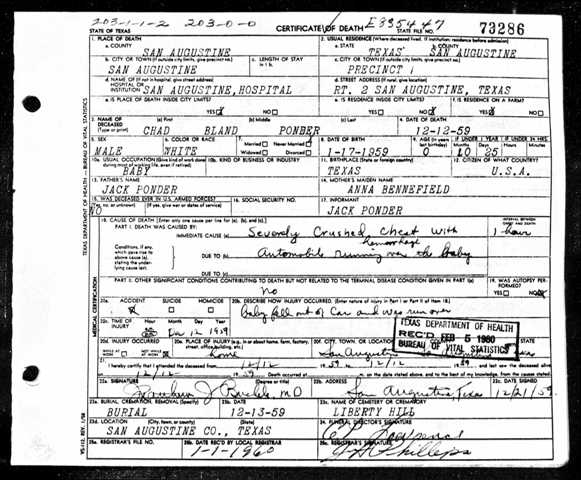 203-1-1-2 203-0-0 E335447
STATE OF TEXAS CERTIFICATE OF DEATH STATE FILE NO. 73286
1. PLACE OF DEATH 2. USUAL RESIDENCE (Where deceased lived. If institution: residence before admission)
a. COUNTY SAN AUGUSTINE a. STATE TEXAS b. COUNTY SAN AUGUSTINE
b. CITY OR TOWN (If outside city limits, give precinct no.) c. LENGTH OF STAY in 1 b. c. CITY OR TOWN (If outside city limits, give precinct no.)
SAN AUGUSTINE PRECINCT 1
d. NAME OF (If not in hospital, give street address) HOSPITAL OR INSTITUTION SAN AUGUSTINE, HOSPITAL d. STREET ADDRESS (If rural, give location) RT. 2 SAN AUGUSTINE, TEXAS
e. IS PLACE OF DEATH INSIDE CITY LIMITS? YES NO e. IS RESIDENCE INSIDE CITY LIMITS? YES NO f. IS RESIDENCE ON A FARM? YES NO
3. NAME OF DECEASED (Type or print) (a) First (b) Middle (c) Last 4. DATE OF DEATH
CHAD BLAND PONDER 12-12-59
5. SEX 6. COLOR OR RACE 7. Married Never Married Widowed Divorced 8. DATE OF BIRTH 9. AGE (In years last birthday) IF UNDER 1 YEAR IF UNDER 24 HRS.
MALE WHITE 1-17-1959 0 10 25
10a. USUAL OCCUPATION (Give kind of work done during most of working life, even if retired) 10b. KIND OF BUSINESS OR INDUSTRY 11. BIRTHPLACE (State or foreign country) 12. CITIZEN OF WHAT COUNTRY?
BABY TEXAS U.S.A.
13. FATHER'S NAME 14. MOTHER'S MAIDEN NAME
JACK PONDER ANNA BENNEFIELD
15. WAS DECEASED EVER IN U.S. ARMED FORCES? (Yes, no, or unknown) (If yes, give war or dates of service) 16. SOCIAL SECURITY NO. 17. INFORMANT
NO JACK PONDER
18. CAUSE OF DEATH (Enter only one cause per line for (a), (b), and (c).) INTERVAL BETWEEN ONSET AND DEATH
PART I. DEATH WAS CAUSED BY:
IMMEDIATE CAUSE (a) Severely Crushed chest with hemorrhage 1 hour
Conditions, if any, which gave rise to above cause (a), stating the underlying cause last.
DUE TO (b) Automobile running over the baby
DUE TO (c)
PART II. OTHER SIGNIFICANT CONDITIONS CONTRIBUTING TO DEATH BUT NOT RELATED TO THE TERMINAL DISEASE CONDITION GIVEN IN PART I(a) 19. WAS AUTOPSY PERFORMED?
no YES NO
20a. ACCIDENT SUICIDE HOMICIDE 20b. DESCRIBE HOW INJURY OCCURRED. (Enter nature of injury in Part I or Part II of item 18.)
Baby fell out of Car and was run over
20c. TIME OF INJURY Hour Month Day Year
12 1959
20d. INJURY OCCURRED 20e. PLACE OF INJURY (e.g., in or about home, farm, factory, street, office building, etc.) 20f. CITY, TOWN, OR LOCATION COUNTY STATE
home San Augustine
TEXAS DEPARTMENT OF HEALTH
REC'D FEB 5 1960
BUREAU OF VITAL STATISTICS
21. I hereby certify that I attended the deceased from 12/12 1959 12/12
12/12 59 Death occurred at m. on the date stated above, and to the best of my knowledge, from the causes stated.
22a. SIGNATURE (Degree or title) 22b. ADDRESS 22c. DATE SIGNED
MD San Augustine, Texas 12/21/59
23a. BURIAL, CREMATION, REMOVAL (Specify) 23b. DATE 23c. NAME OF CEMETERY OR CREMATORY
BURIAL 12-13-59 LIBERTY HILL
23d. LOCATION (City, town, or county) (State) 24. FUNERAL DIRECTOR'S SIGNATURE
SAN AUGUSTINE CO., TEXAS
25a. REGISTRAR'S FILE NO. 25b. DATE REC'D BY LOCAL REGISTRAR 25c. REGISTRAR'S SIGNATURE
1-1-1960 Phillips
TEXAS DEPARTMENT OF HEALTH — BUREAU OF VITAL STATISTICS
MEDICAL CERTIFICATION
VS-112, REV. 1/58